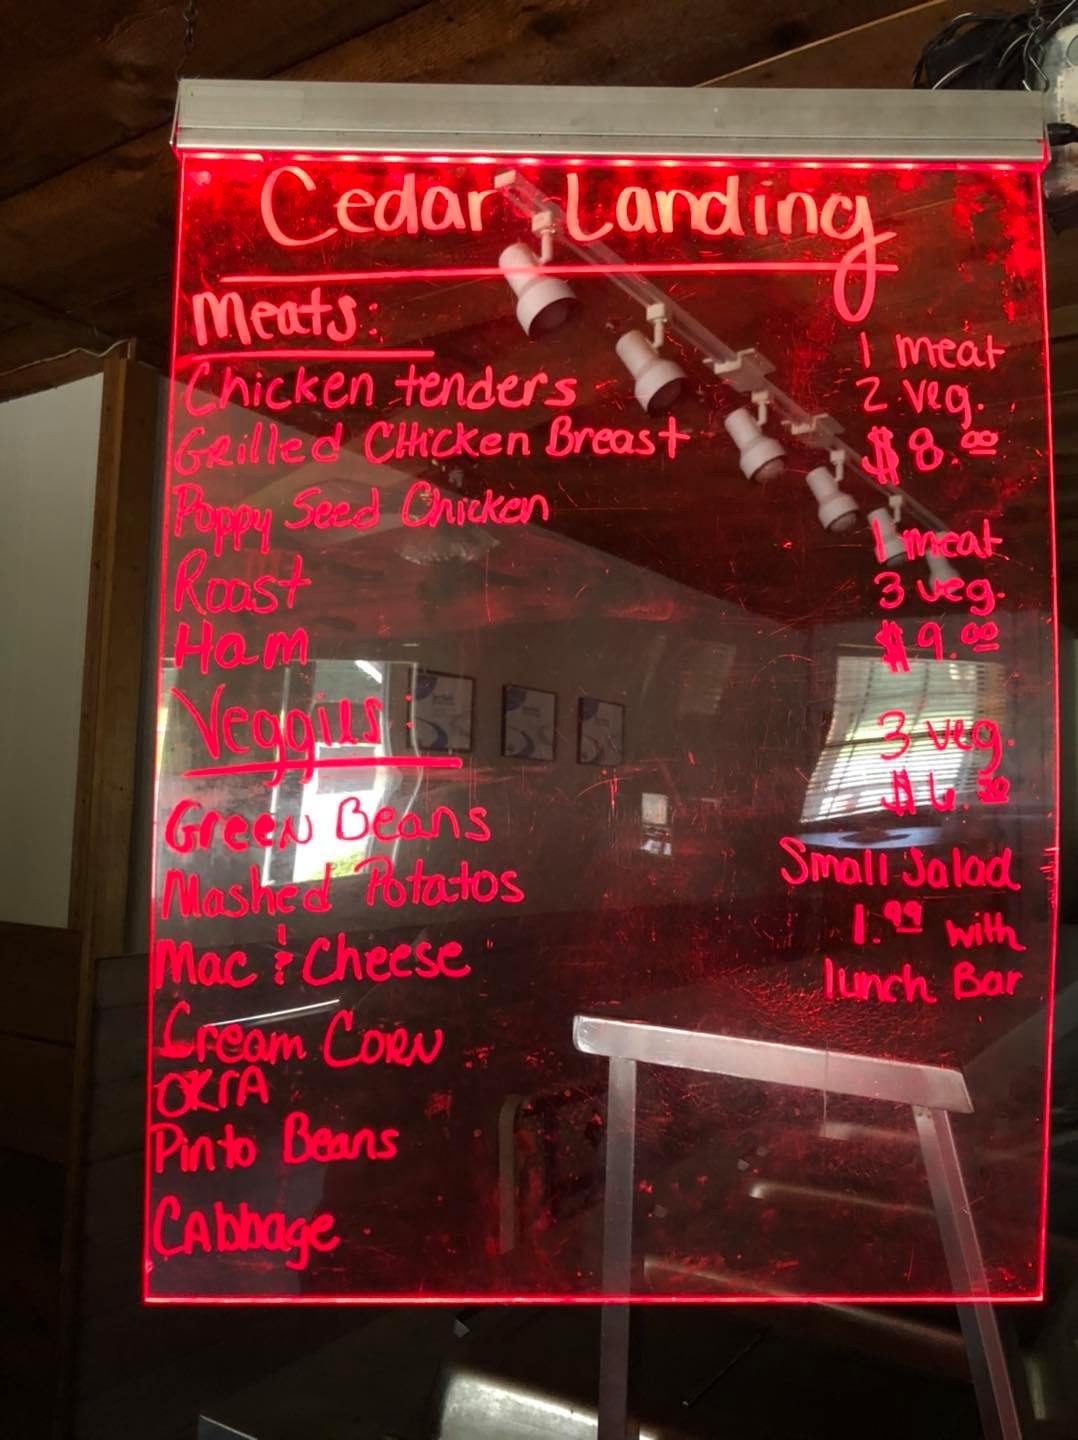 Cedar Landing
Meats:
Chicken tenders
Grilled CHicken Breast
Poppy Seed Chicken
Roast
Ham
Veggies:
Green Beans
Mashed Potatos
Mac & Cheese
Cream Corn
OKrA
Pinto Beans
CAbbage
1 meat
2 veg.
$8.00
1 meat
3 veg.
$9.00
3 veg.
$6.50
Small Salad
1.99 with
lunch Bar